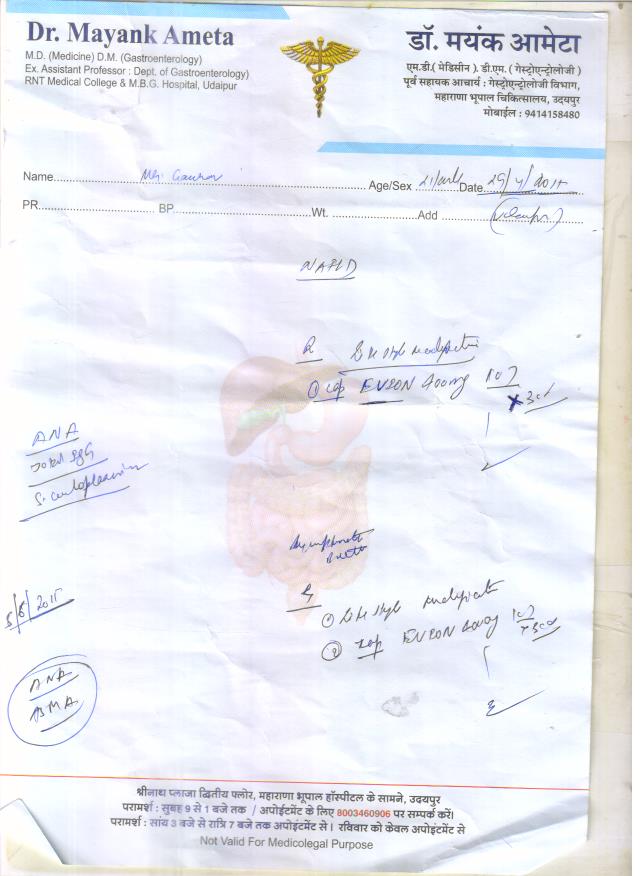 Dr. Mayank Ameta
M.D. (Medicine) D.M. (Gastroenterology)
Ex. Assistant Professor : Dept. of Gastroenterology)
RNT Medical College & M.B.G. Hospital, Udaipur
डॉ. मयंक आमेटा
एम.डी.( मेडिसीन ). डी.एम. ( गेस्ट्रोएन्ट्रोलोजी )
पूर्व सहायक आचार्य : गेस्ट्रोएन्ट्रोलोजी विभाग,
महाराणा भूपाल चिकित्सालय, उदयपुर
मोबाईल : 9414158480
Name Mr. Gaurav Age/Sex 21/ Date
PR BP Wt. Add
NAFLD
R
① cap EVION 400mg
x 30d
ANA
S. ceruloplasmin
①
② cap EVION 400mg
x 30d
ANA
श्रीनाथ प्लाजा द्वितीय फ्लोर, महाराणा भूपाल हॉस्पीटल के सामने, उदयपुर
परामर्श : सुबह 9 से 1 बजे तक / अपोइंटमेंट के लिए 8003460906 पर सम्पर्क करें।
परामर्श : सांय 3 बजे से रात्रि 7 बजे तक अपोइंटमेंट से। रविवार को केवल अपोइंटमेंट से
Not Valid For Medicolegal Purpose